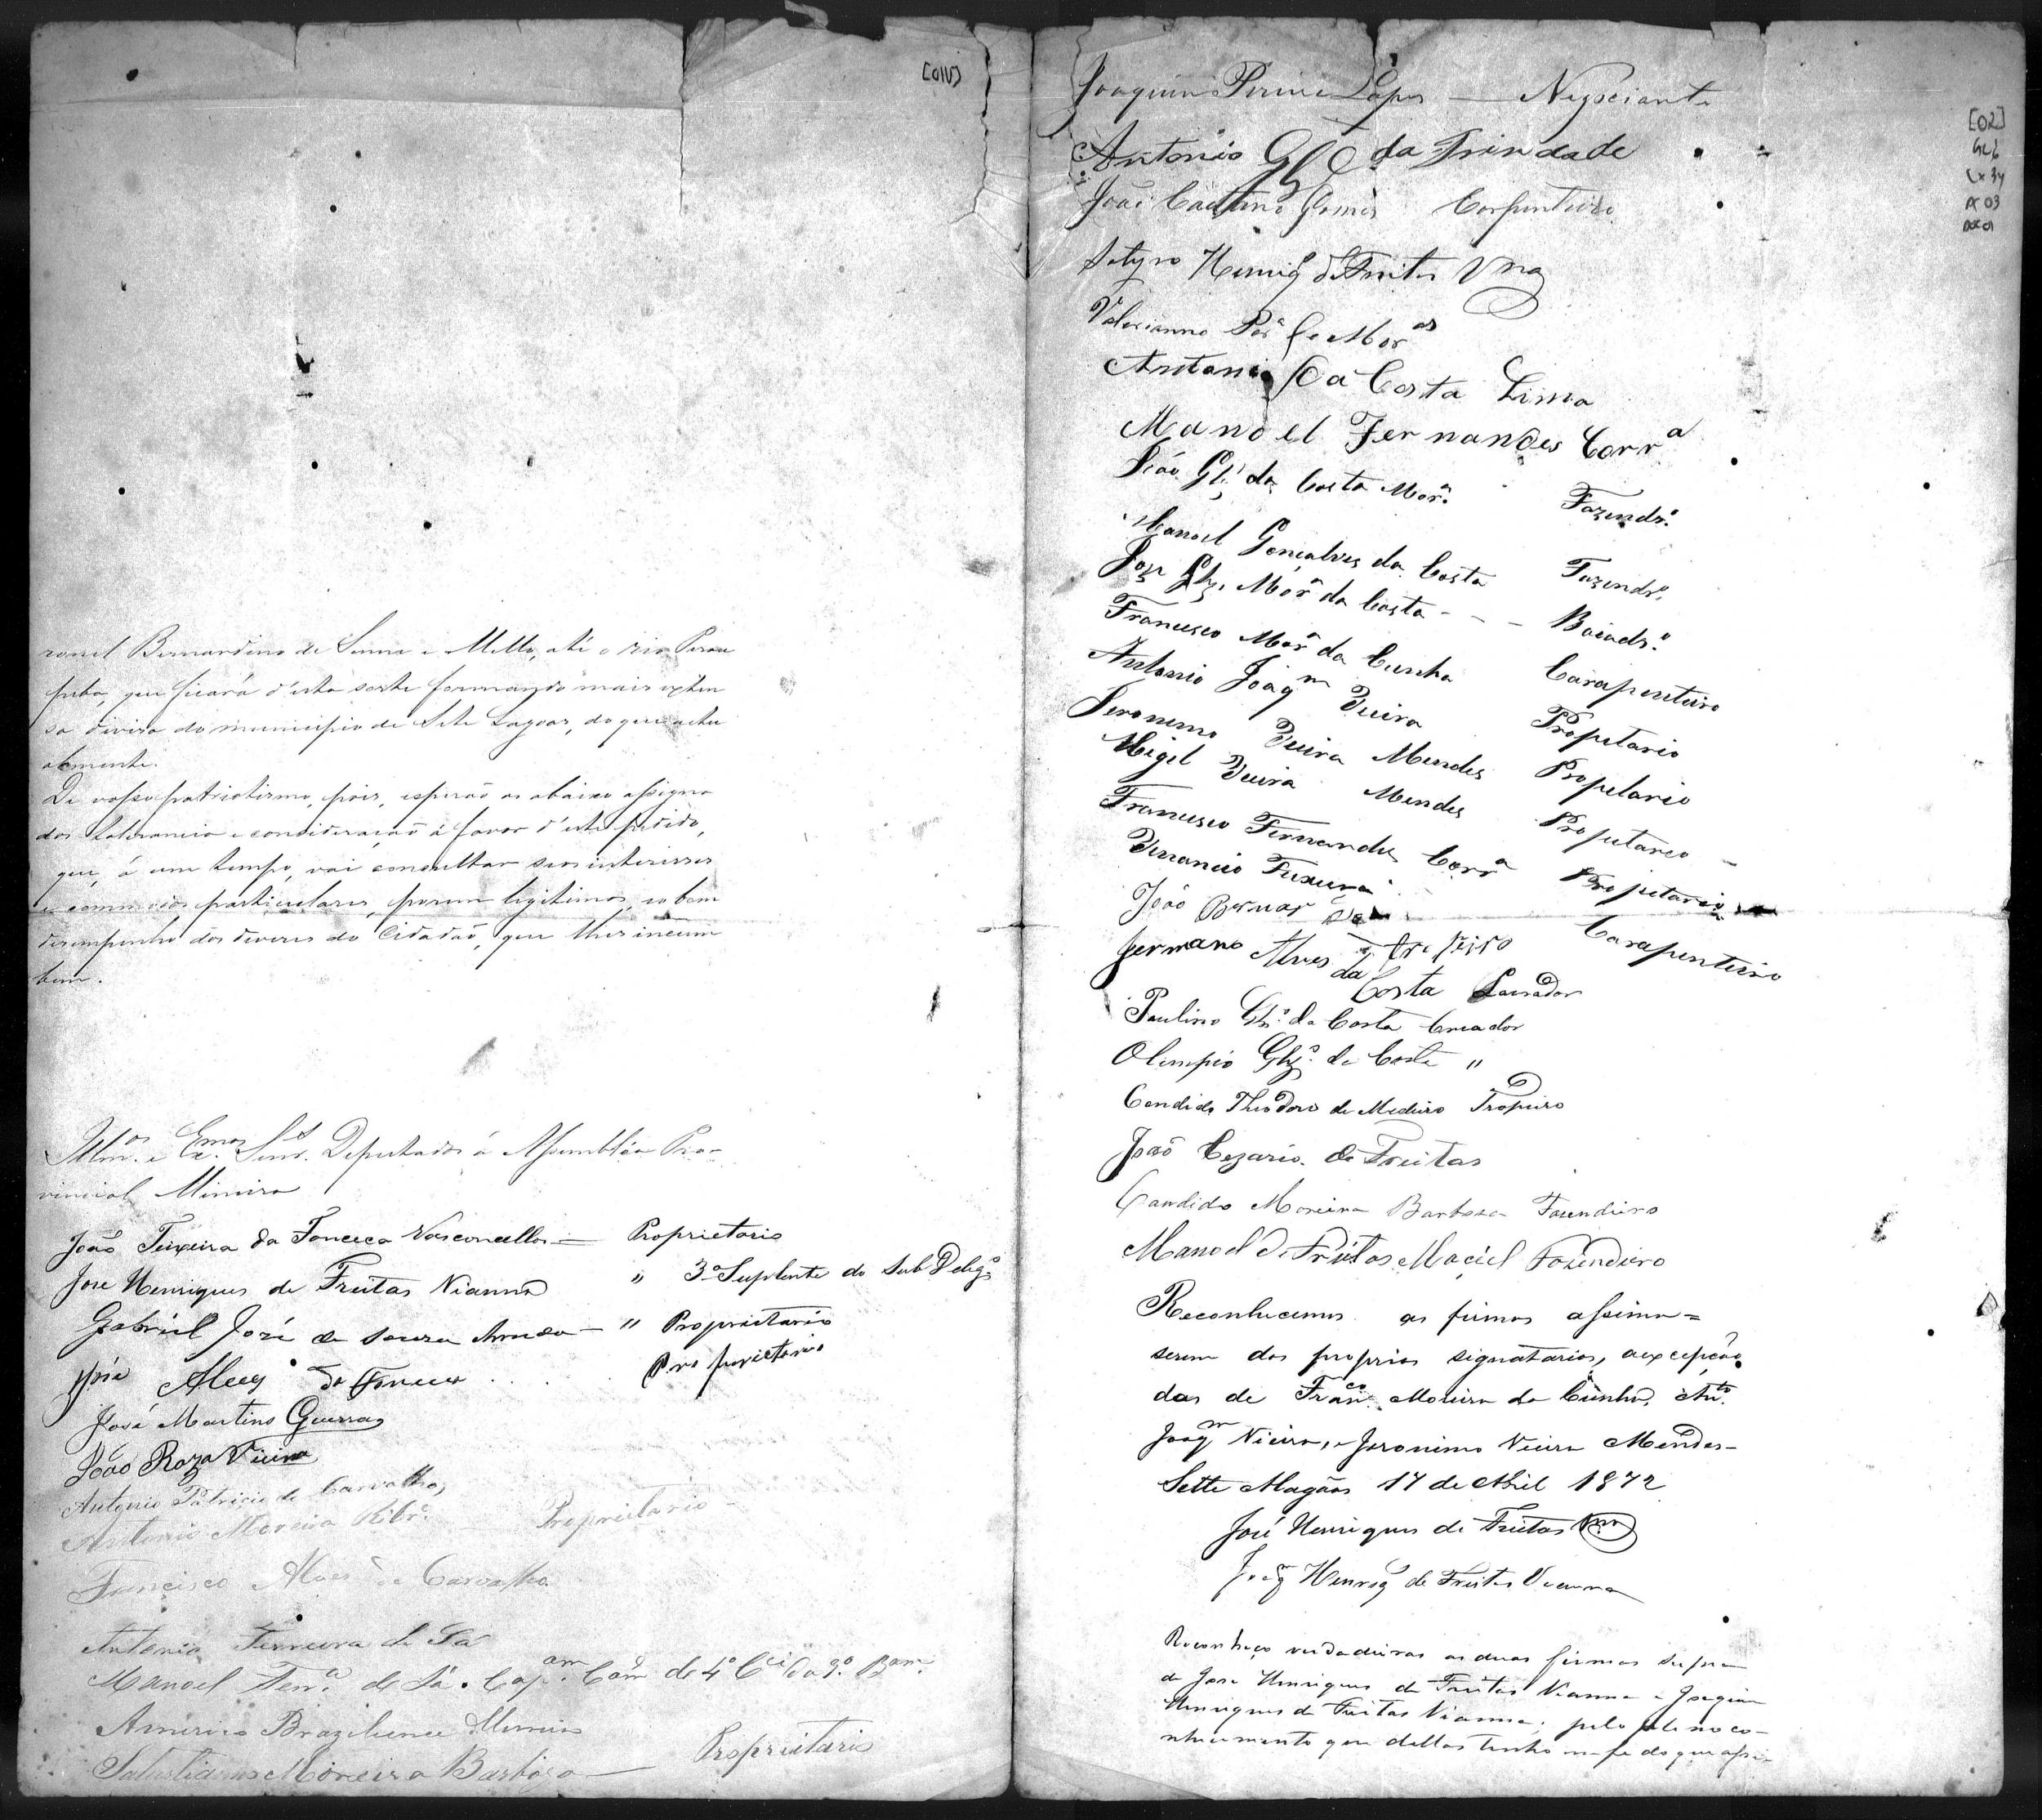 [01V]
ronel Bernardino de Senna e Mello, até o rio Parau
peba, que ficará d'esta sorte formando mais exten
sa divisa do municipio de Sete Lagoas, do que actu
almente.
De vosso patriotismo, pois, esperão os abaixo assigna
dos tolerancia e consideração á favor d'este pedido,
que, á um tempo, vai consultar seos interesses
e commodos particulares, porem legitimos, e o bem
desempenho dos deveres do Cidadão, que lhes incum
bem.
Illmos. e Exmos. Senrs. Deputados á Assembléa Pro-
vincial Mineira
João Teixeira da Fonceca Vasconcellos — Proprietario
Jose Henriques de Freitas Vianna " 3º Suplente do Sub Delegº
Gabriel José de Souza — " Proprietario
José Alves da Fonceca . . . Proprietario
José Martins Guerra
João Roza Vieira
Antonio Patricio de Carvalho
Antonio Moreira Ribrº — Proprietario
Francisco Alves de Carvalho
Antonio Ferreira de Sá
Manoel Ferrª de Sá. Capam. Com de 4ª Cia do 9º Bam.
Americo Braziliense
Salustiano Moreira Barboza — Proprietario
[02]
Cx 34
03
Joaquim Lopes — Negociante
Antonio Glz da Trindade
João Caetano Gomes Carpenteiro
Satyro Henriqs de Freitas Vna
Valerianno Perª de Moraes
Antonio da Costa Lima
Manoel Fernandes Corrª
João Glz da Costa Morª Fazendrº
Manoel Gonçalves da Costa Fazendrº
Joze Glz. Morª da Costa - - - Boiadrº
Francisco Morª da Cunha Carapenteiro
Antonio Joaqm Vieira Propetario
Jeronimo Vieira Mendes Propetario
Migel Vieira Mendes Propetario —
Francisco Fernandes Corrª Propetario
Venancio Carapenteiro
João Bernar
Germano Alves da Costa Lavrador
Paulino Glz. da Costa Creador
Olimpio Glz. da Costa "
Candido Theodoro de Medeiro Tropeiro
João Cezario de Freitas
Candido Moreira Barboza Fazendeiro
Manoel de Freitas Maciel Fazendeiro
Reconhecemos as firmas assima =
serem dos proprios signatarios, a excepção
das de Franco. Moreira da Cunha, Anto.
Joaqm Vieira, e Jeronimo Vieira Mendes -
Sette Alagôas 17 de Abril 1872
José Henriques de Freitas Vna
Joaqm Henrqs de Freitas Vianna
Reconheço verdadeiras as duas firmas supra
de Jose Henriques de Freitas Vianna e Joaquim
Henriques de Freitas Vianna; pelo pleno co-
nhecimento que dellas tenho